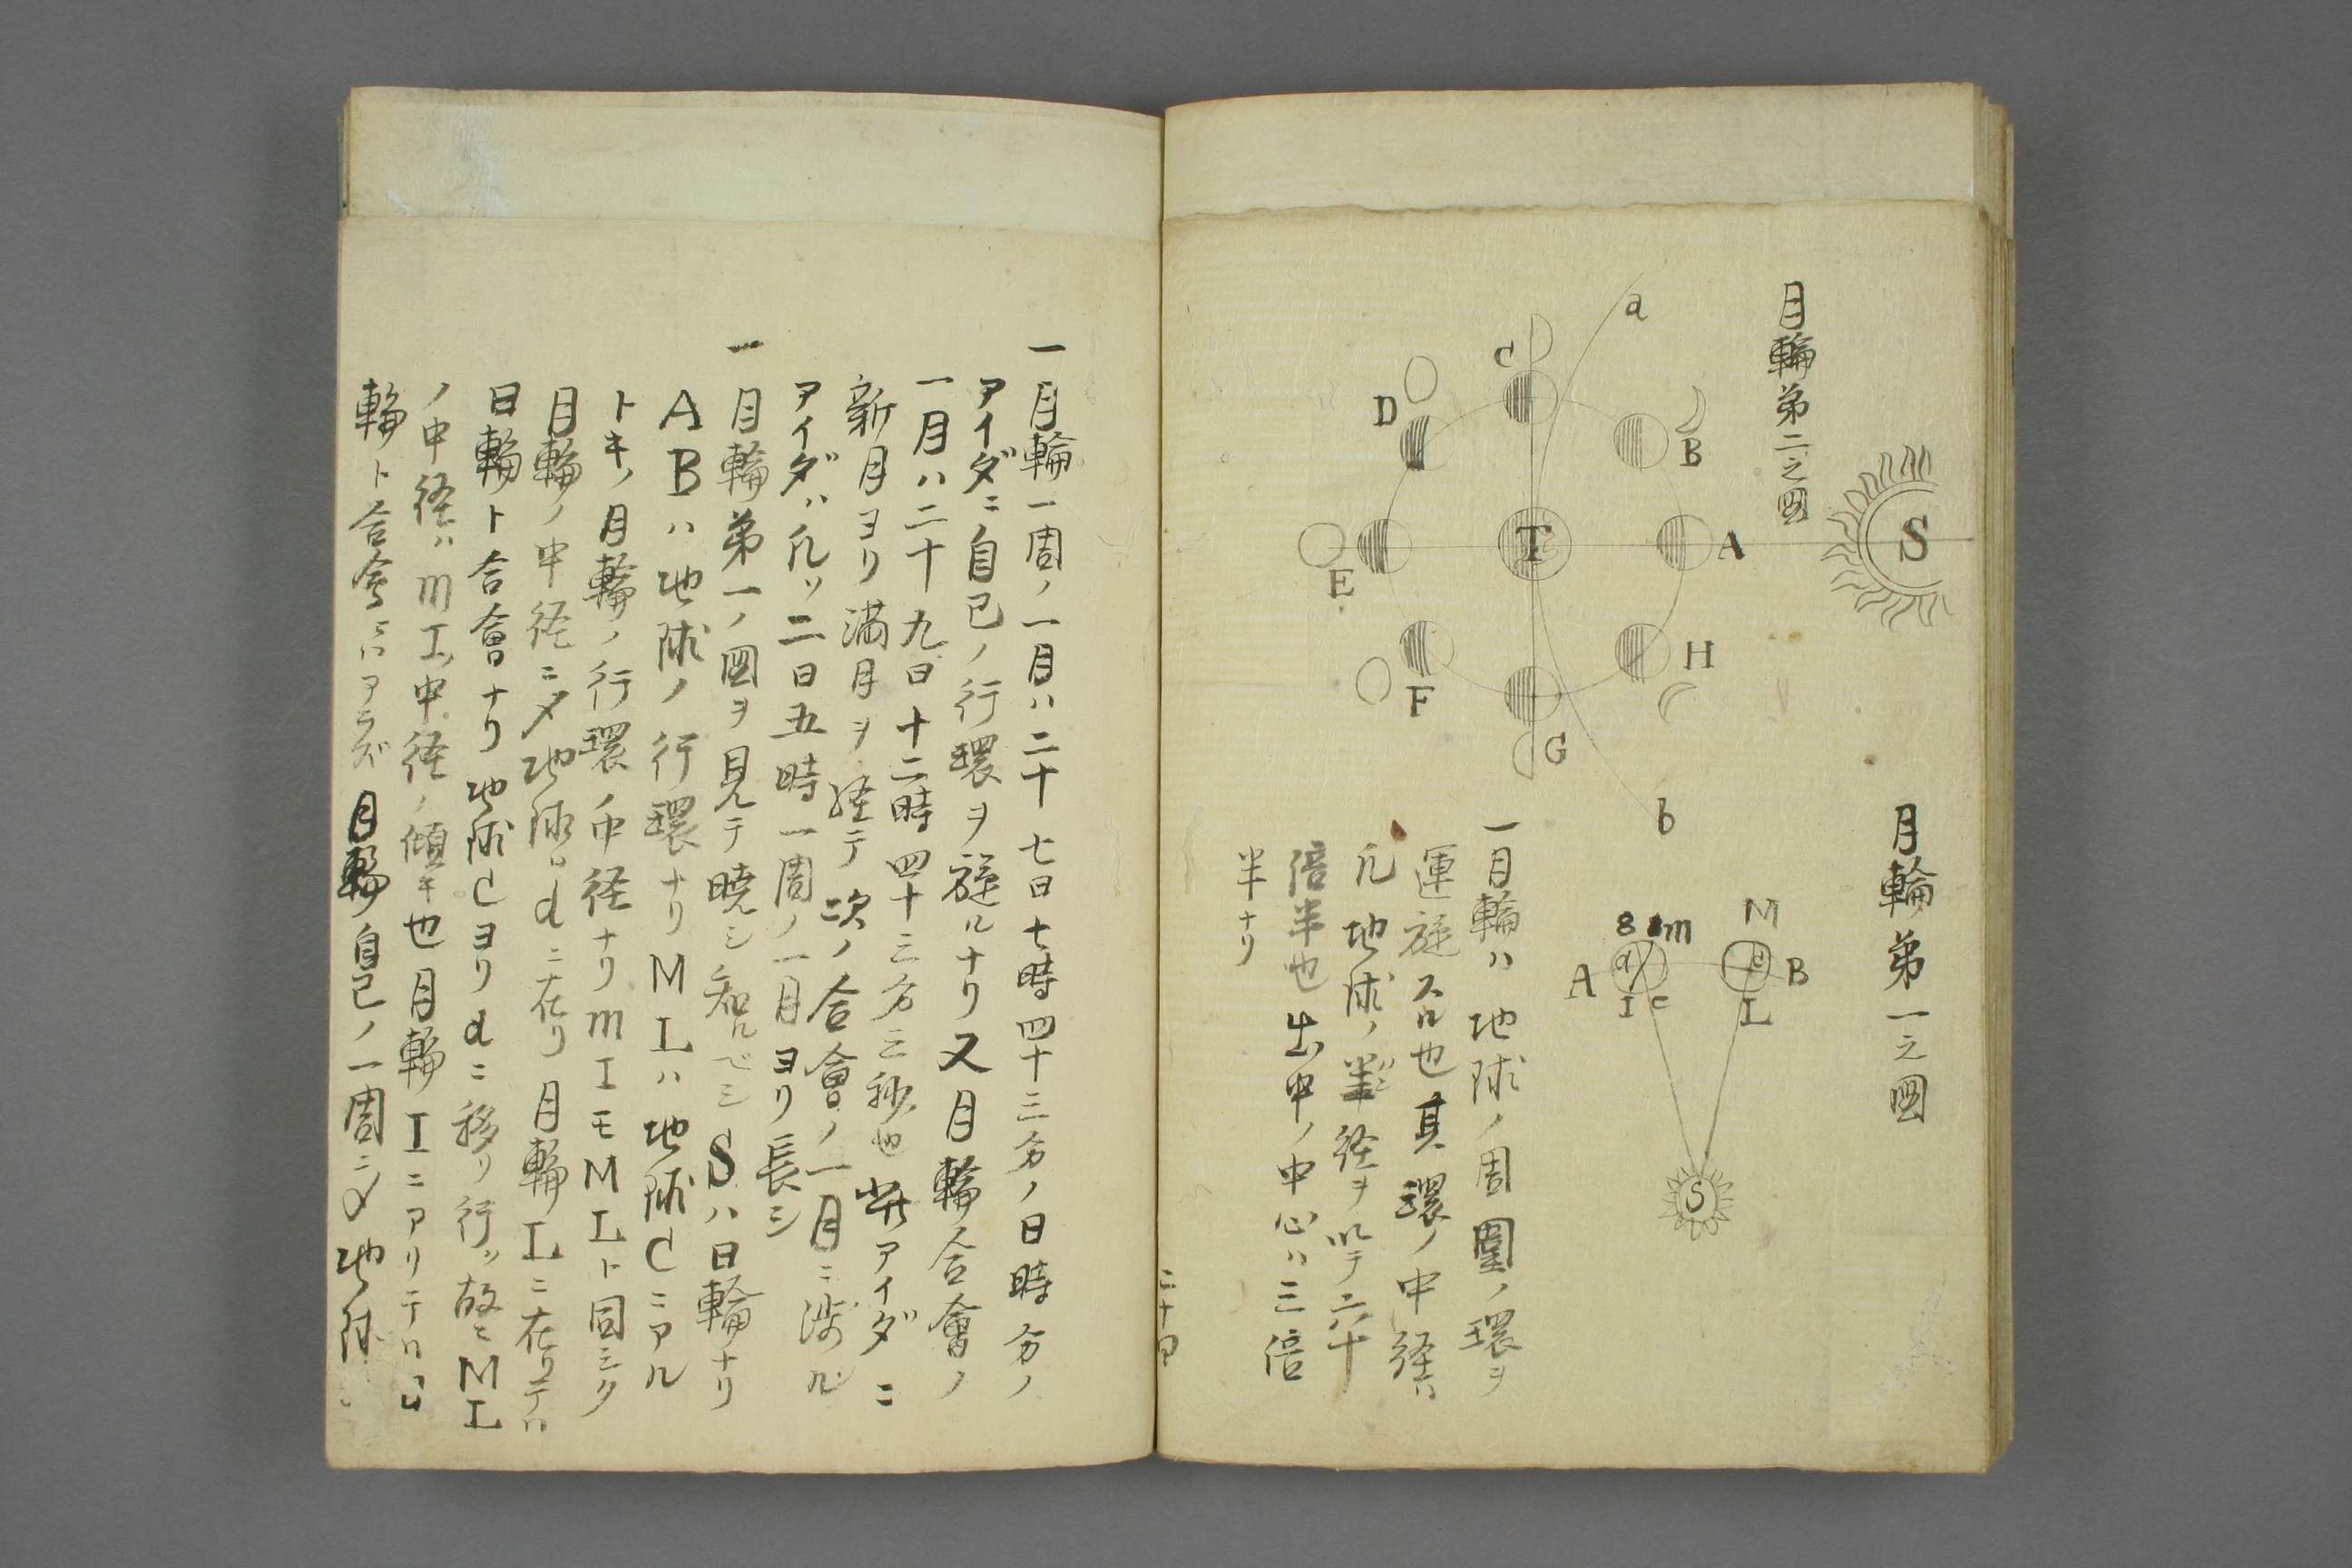 月輪第二之図
S
a
C
B
D
A
T
E
H
F
G
b
月輪第一之図
M
8 m
A
B
I c
L
S
一月輪ハ地球ノ周圍ノ環ヲ
運旋スル也其環ノ中径ハ
凡地球ノ半径ヲ以テ六十
倍半也出中ノ中心ハ三倍
半ナリ
二十四
一月輪一周ノ一月ハ二十七日七時四十三分ノ日時分ノ
アイダニ自己ノ行環ヲ旋ルナリ又月輪合會ノ
一月ハ二十九日十二時四十三分三秒也此アイダニ
新月ヨリ満月ヲ経テ次ノ合會ノ一月ニ渉ル
アイダハ凡ソ二日五時一周ノ一月ヨリ長シ
一月輪第一ノ図ヲ見テ暁シ知ルベシSハ日輪ナリ
ABハ地球ノ行環ナリMLハ地球Cニアル
トキノ月輪ノ行環ノ中径ナリmIモMLト同シク
月輪ノ中径ニ〆地球dニ在リ月輪Lニ在リテハ
日輪ト合會ナリ地球Cヨリdニ移リ行ク故ニML
ノ中径ハmI中径ノ傾キ也月輪Iニアリテハ日
輪ト合會ニハアラズ月輪自己ノ一周ニ〆地球